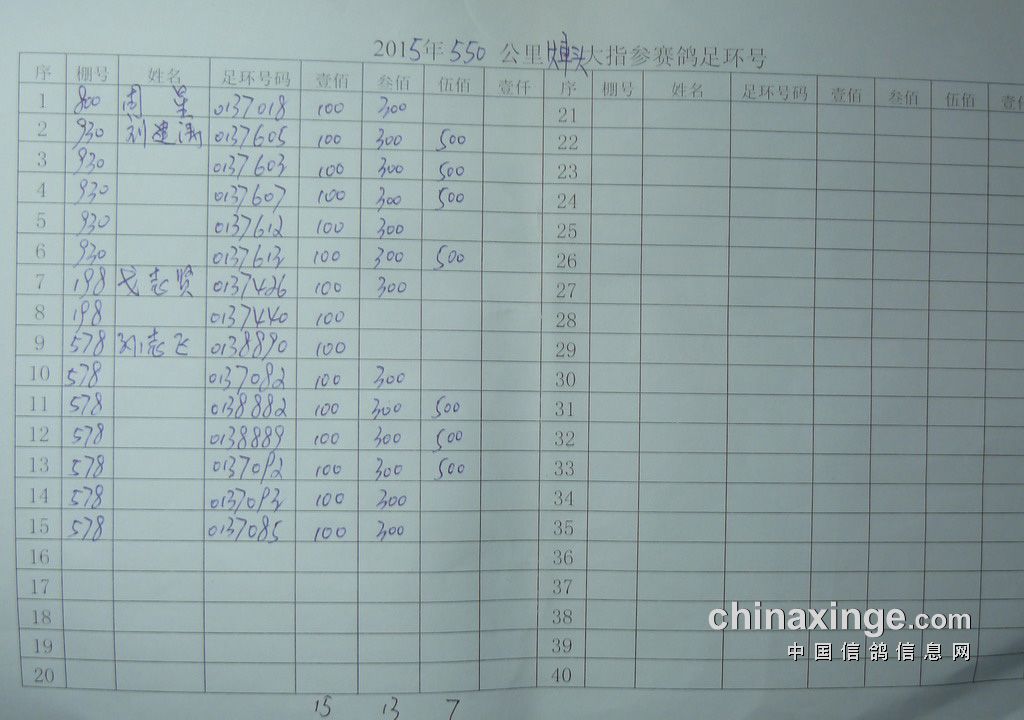 2015年550公里 大指参赛鸽足环号
序 棚号 姓名 足环号码 壹佰 叁佰 伍佰 壹仟 序 棚号 姓名 足环号码 壹佰 叁佰 伍佰
1 800 周 星 0137018 100 300 21
2 930 刘建涛 0137605 100 300 500 22
3 930 0137603 100 300 500 23
4 930 0137607 100 300 500 24
5 930 0137612 100 300 25
6 930 0137613 100 300 500 26
7 198 戈志贤 0137426 100 300 27
8 198 0137440 100 28
9 578 志飞 0138890 100 29
10 578 0137082 100 300 30
11 578 0138882 100 300 500 31
12 578 0138889 100 300 500 32
13 578 0137092 100 300 500 33
14 578 0137093 100 300 34
15 578 0137085 100 300 35
16 36
17 37
18 38
19 39
20 40
15 13 7
chinaxinge.com
中国信鸽信息网